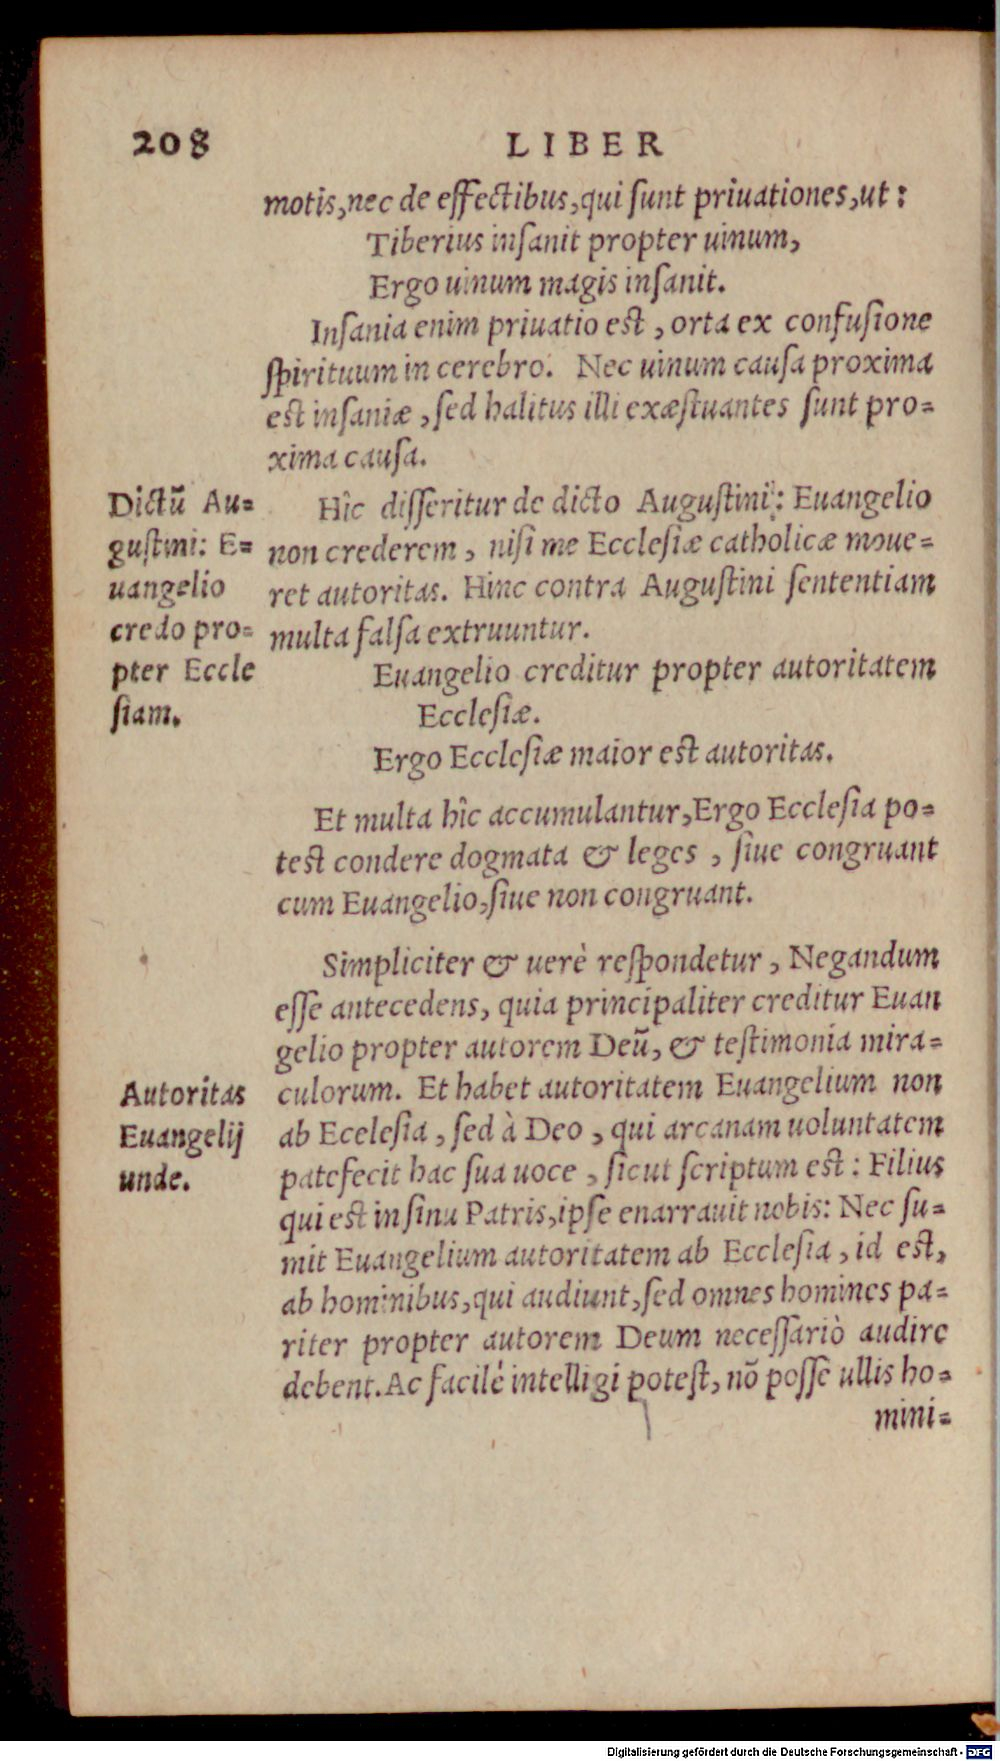 208 LIBER
motis,nec de effectibus,qui ſunt priuationes,ut :
Tiberius inſanit propter uinum,
Ergo uinum magis inſanit.
Inſania enim priuatio est , orta ex confuſione
ſpirituum in cerebro. Nec uinum cauſa proxima
est inſaniæ , ſed halitus illi exæſtuantes ſunt pro=
xima cauſa.
Dictū Au=
guſtini: E=
uangelio
credo pro=
pter Eccle
ſiam.
Hîc diſſeritur de dicto Auguſtini: Euangelio
non crederem , niſi me Eccleſiæ catholicæ moue=
ret autoritas. Hinc contra Auguſtini ſententiam
multa falſa extruuntur.
Euangelio creditur propter autoritatem
Eccleſiæ.
Ergo Eccleſiæ maior est autoritas.
Et multa hîc accumulantur,Ergo Eccleſia po=
test condere dogmata & leges , ſiue congruant
cum Euangelio,ſiue non congruant.
Simpliciter & uerè reſpondetur , Negandum
eſſe antecedens, quia principaliter creditur Euan
gelio propter autorem Deū, & teſtimonia mira=
Autoritas
Euangelij
unde.
culorum. Et habet autoritatem Euangelium non
ab Ecelesia , ſed à Deo , qui arcanam uoluntatem
patefecit hac ſua uoce , ſicut ſcriptum est : Filius
qui est in ſinu Patris,ipſe enarrauit nobis: Nec ſu=
mit Euangelium autoritatem ab Eccleſia , id est,
ab hominibus,qui audiunt,ſed omnes homines pa=
riter propter autorem Deum neceſſariò audire
debent.Ac facilè intelligi poteſt, nō poſſe ullis ho=
mini=
Digitalisierung gefördert durch die Deutsche Forschungsgemeinschaft - DFG